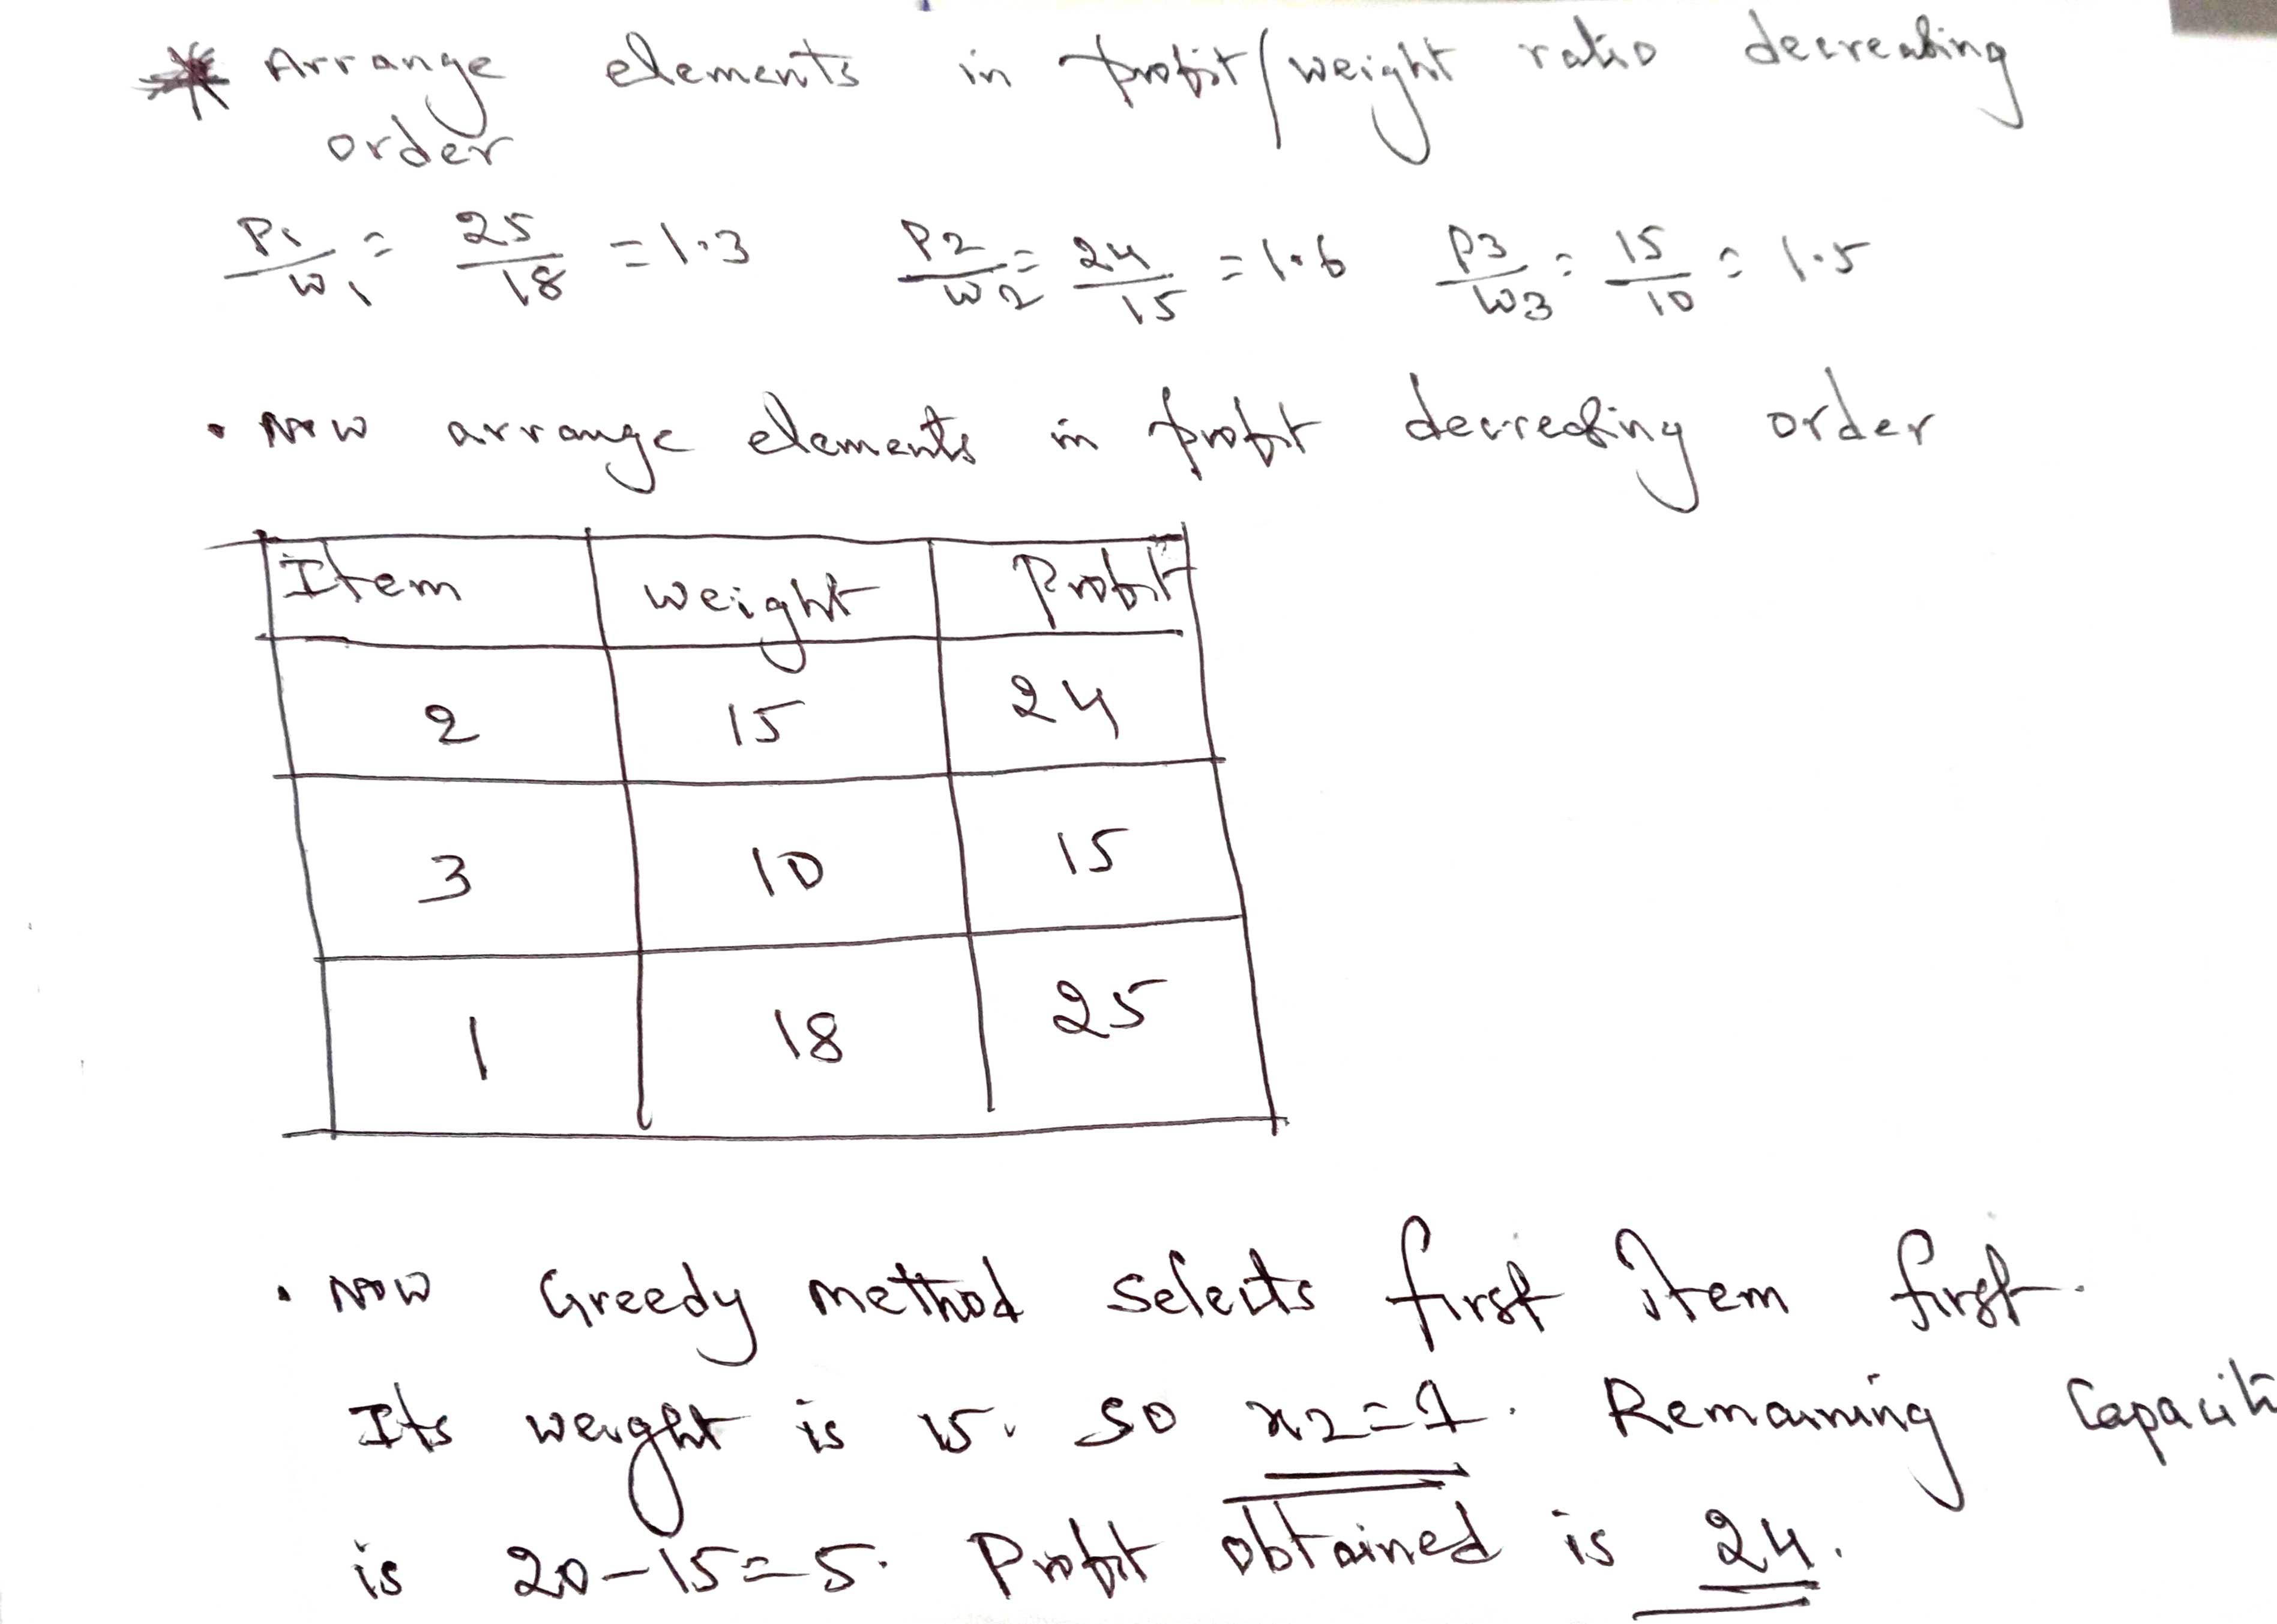 * Arrange elements in profit/weight ratio decreasing
order
P1/w1 = 25/18 = 1.3 P2/w2 = 24/15 = 1.6 P3/w3 = 15/10 = 1.5
• Now arrange elements in profit decreasing order
Item weight Profit
2 15 24
3 10 15
1 18 25
• Now Greedy method selects first item first.
Its weight is 15. So x2=1. Remaining
is 20-15=5. Profit obtained is 24.